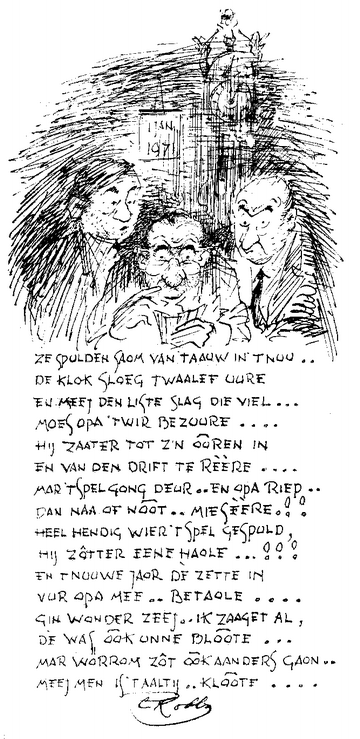 1 JAN
1971
ZE SPULDEN SAOM VAN 'T AAUW IN 'T NUU ..
DE KLOK SLOEG TWAALEF UURE
EN MEEJ DEN LISTE SLAG DIE VIEL ...
MOES OPA 'T WIR BEZUURE ....
HIJ ZAATER TOT Z'N ÔÔREN IN
EN VAN DEN DRIFT TE RÈÈRE ....
MAR 'T SPEL GONG DEUR .. EN OPA RIEP ..
DAN NAA OF NÔÔT .. MIESÈÈRE !!
HEEL HENDIG WIER 'T SPEL GESPULD,
HIJ ZÔTTER EENE HAOLE ... !!!
EN 'T NUUWE JAOR DÈ ZETTE IN
VUR OPA MEE .. BETAOLE ....
GIN WONDER ZEEJ .. IK ZAAGET AL,
DÈ WAS ÔÔK UNNE BLÔÔTE ...
MAR WORROM ZÔT ÔÔK AANDERS GAON ..
MEEJ MEN IS 'T AALTIJ .. KLÔÔTE ....